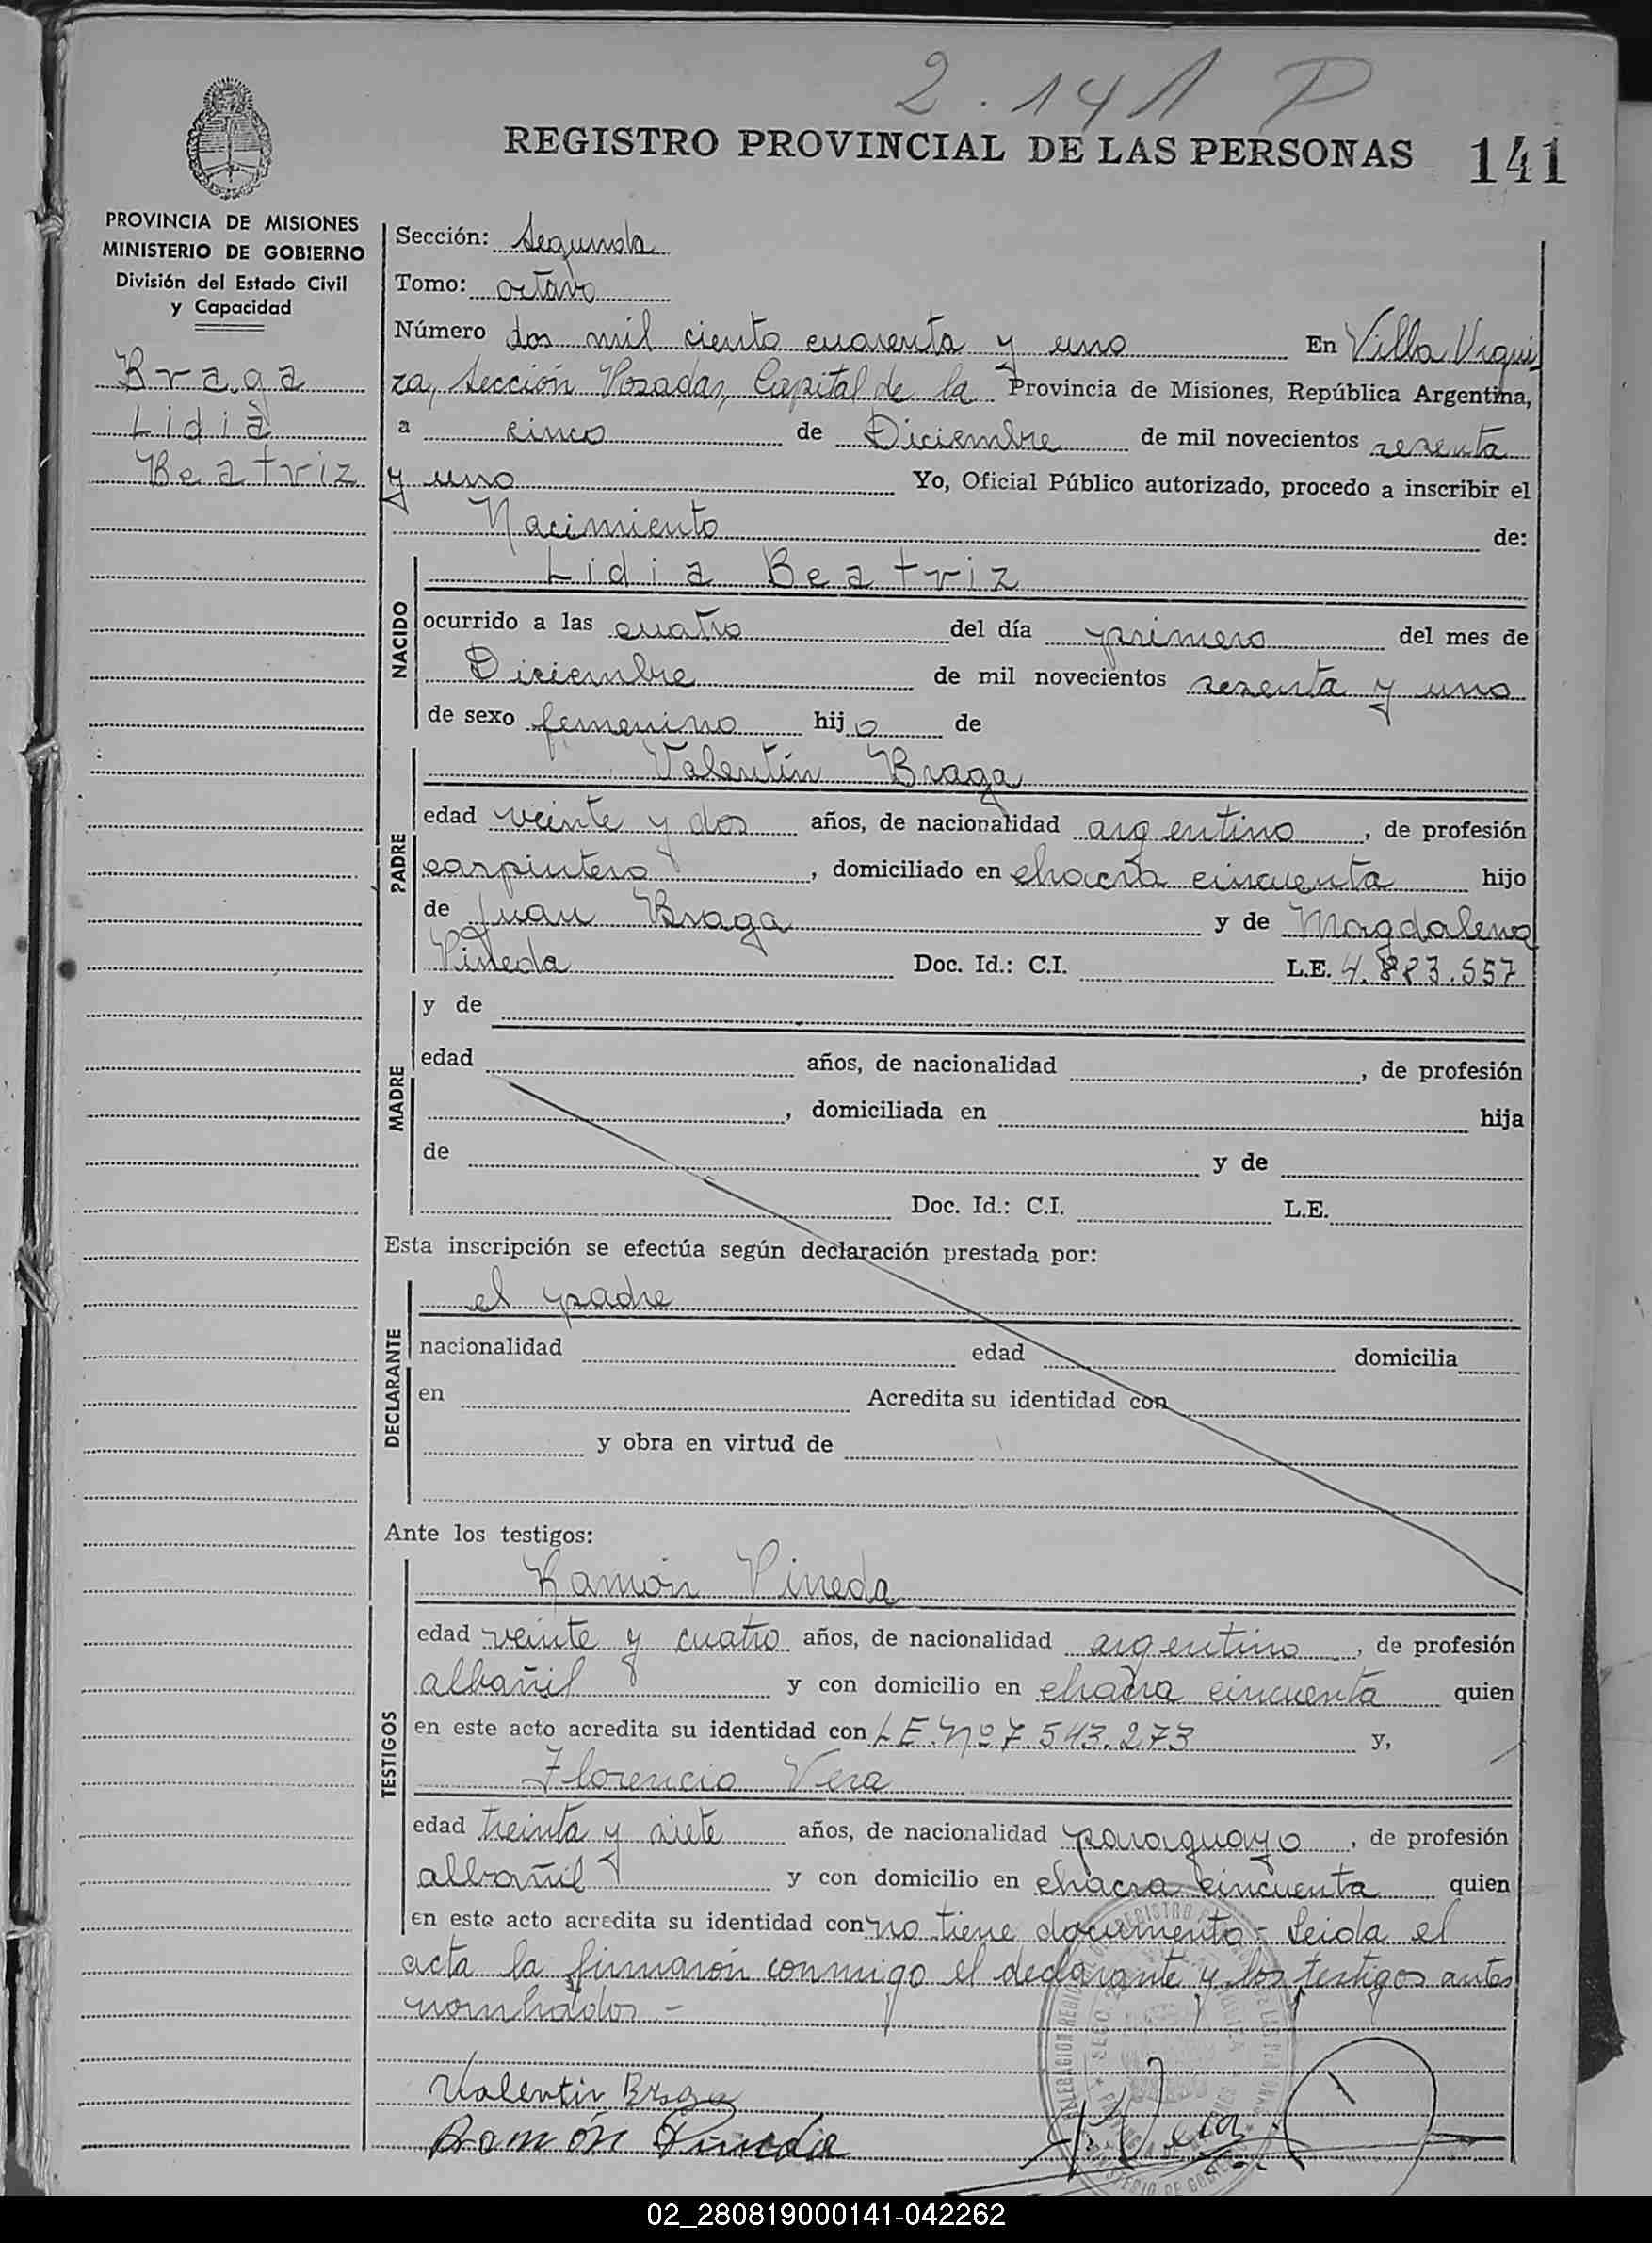 2.141 P
REGISTRO PROVINCIAL DE LAS PERSONAS 141
PROVINCIA DE MISIONES
MINISTERIO DE GOBIERNO
División del Estado Civil
y Capacidad
Braga
Lidia
Beatriz
Sección: Segunda
Tomo: octavo
Número dos mil ciento cuarenta y uno En Villa Urqui
za, Sección Posadas, Capital de la Provincia de Misiones, República Argentina,
a cinco de Diciembre de mil novecientos sesenta
y uno Yo, Oficial Público autorizado, procedo a inscribir el
Nacimiento de:
NACIDO
Lidia Beatriz
ocurrido a las cuatro del día primero del mes de
Diciembre de mil novecientos sesenta y uno
de sexo femenino hijo de
PADRE
Valentín Braga
edad veinte y dos años, de nacionalidad argentino, de profesión
carpintero, domiciliado en chacra cincuenta hijo
de Juan Braga y de Magdalena
Pineda Doc. Id.: C.I. L.E. 4.823.557
MADRE
y de
edad años, de nacionalidad , de profesión
, domiciliada en hija
de y de
Doc. Id.: C.I. L.E.
Esta inscripción se efectúa según declaración prestada por:
DECLARANTE
el padre
nacionalidad edad domicilia
en Acredita su identidad con
y obra en virtud de
Ante los testigos:
TESTIGOS
Ramón Pineda
edad veinte y cuatro años, de nacionalidad argentino, de profesión
albañil y con domicilio en chacra cincuenta quien
en este acto acredita su identidad con L.E. Nº 7.543.273 y,
Florencio Vera
edad treinta y siete años, de nacionalidad paraguayo, de profesión
albañil y con domicilio en chacra cincuenta quien
en este acto acredita su identidad con no tiene documento- Leida el
acta la firmarón conmigo el declarante y los testigos antes
nombrados.-
Valentin Braga
Ramón Pineda
Vera
02_280819000141-042262